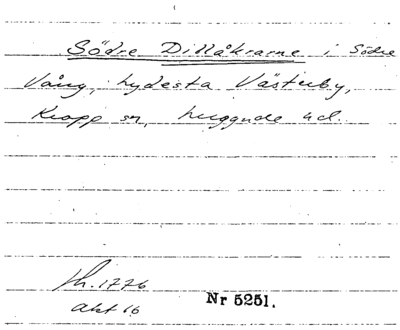 Södre Dillåkrarne i Södre
Vång, Lydesta Västerby,
Knapp sn, Luggude hd.
Lh. 1776
akt 16
Nr 5251.